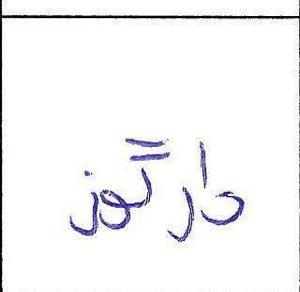 دار گوز